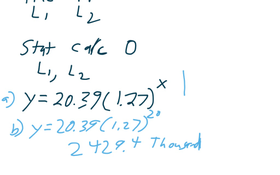 L₁ L₂
Stat calc 0
L₁, L₂
a) y = 20.39(1.27)^x
b) y = 20.39(1.27)^20
2429.4 Thousand